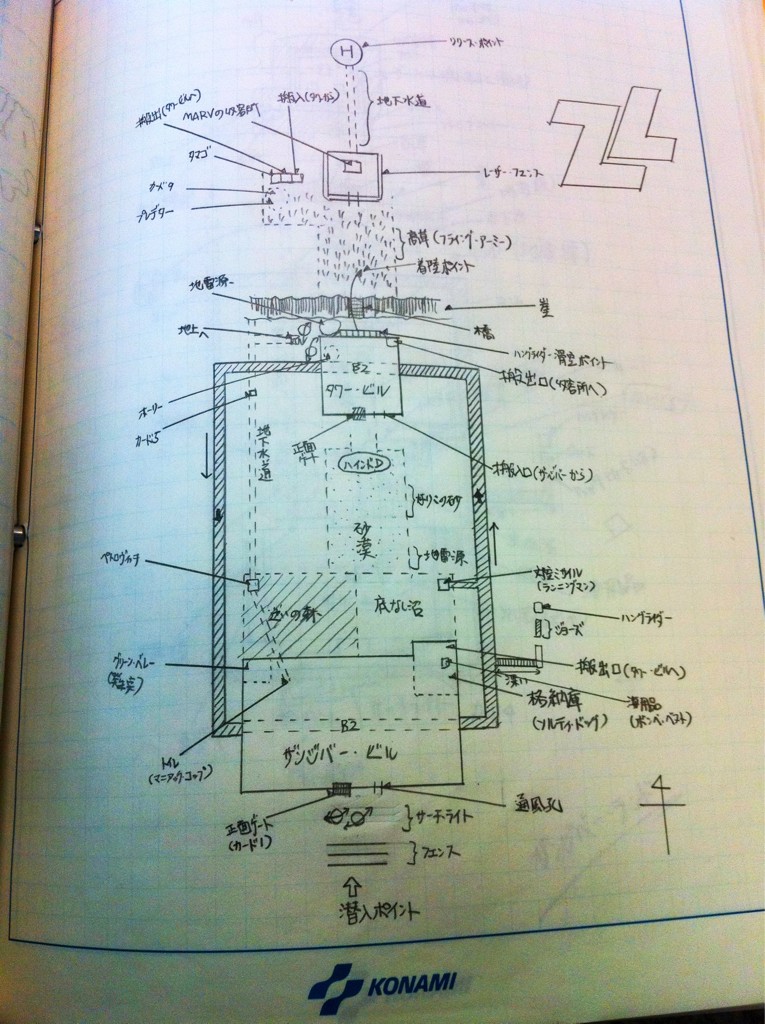 H
リリースポイント
地下水道
搬入(タワーから)
搬出(タワービルへ)
MARVの収容所
タマゴ
カメラ
プレデター
レーザー・フェンス
高草(フライング・アーミー)
着陸ポイント
地雷源
崖
地上へ
橋
ハングライダー滑空ポイント
搬出口(収容所へ)
B2
タワー・ビル
ホーリー
カード5
地下水道
正面ゲート
ハインドD
搬入口(ザンジバーから)
砂漠
地雷源
ペトロヴィッチ
対空ミサイル
(ランニングマン)
迷いの森
底なし沼
ハングライダー
ジョーズ
グリーン・ベレー
搬出口(タワー・ビルへ)
深い
格納庫
(ソルティ・ドッグ)
(ボンベ・ベスト)
B2
トイレ
(マニアック・コップ)
ザンジバー・ビル
正面ゲート
(カード1)
通風孔
サーチライト
フェンス
潜入ポイント
4
KONAMI